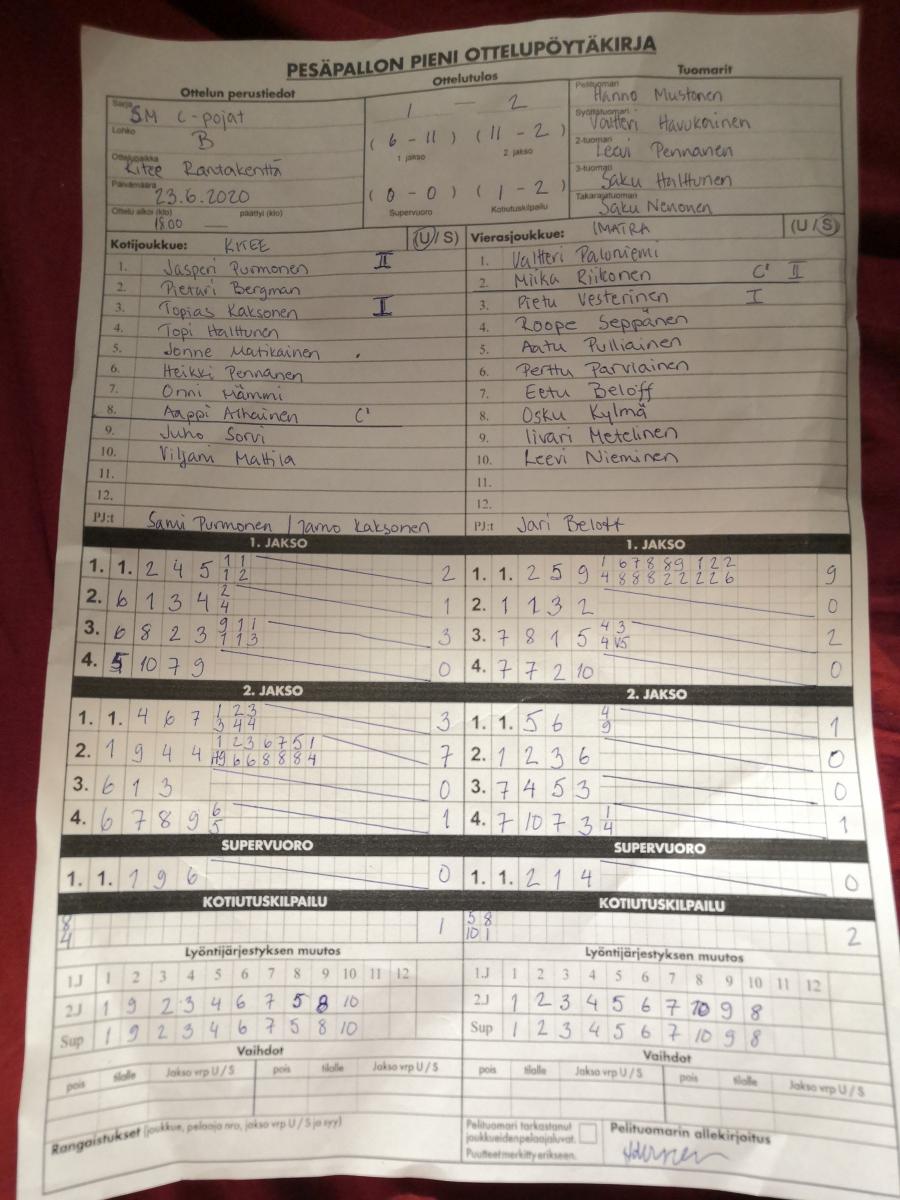 PESÄPALLON PIENI OTTELUPÖYTÄKIRJA
Ottelun perustiedot
Ottelutulos
Tuomarit
Sarja SM C-pojat
Lohko B
Ottelupaikka Kitee Rantakenttä
Päivämäärä 23.6.2020
Ottelu alkoi (klo) 18.00 päättyi (klo) —
1 — 2
( 6 - 11 ) ( 11 - 2 )
1. jakso 2. jakso
( 0 - 0 ) ( 1 - 2 )
Supervuoro Kotiutuskilpailu
Pelituomari Hanno Mustonen
Syöttötuomari Valtteri Havukainen
2-tuomari Leevi Pennanen
3-tuomari Saku Halttunen
Takarajatuomari Saku Nenonen
Kotijoukkue: KITEE (U/S)
1. Jasperi Purmonen II
2. Pietari Bergman
3. Topias Kaksonen I
4. Topi Halttunen
5. Jonne Matikainen
6. Heikki Pennanen
7. Onni Mämmi
8. Aappi Alhainen C'
9. Juho Sorvi
10. Viljami Mattila
11.
12.
PJ:t Sami Purmonen / Jarno Kaksonen
Vierasjoukkue: IMATRA (U/S)
1. Valtteri Paloniemi
2. Miika Riikonen C' II
3. Pietu Vesterinen I
4. Roope Seppänen
5. Aatu Pulliainen
6. Perttu Parviainen
7. Eetu Beloff
8. Osku Kylmä
9. Iivari Metelinen
10. Leevi Nieminen
11.
12.
PJ:t Jari Beloff
1. JAKSO
1. 1. 2 4 5 1 1 2
1 2
2. 6 1 3 4 2 1
4
3. 6 8 2 3 9 1 1 3
1 1 3
4. 5 10 7 9 0
1. JAKSO
1. 1. 2 5 9 1 6 7 8 8 9 1 2 2 9
4 8 8 8 2 2 2 2 6
2. 1 1 3 2 0
3. 7 8 1 5 4 3 2
4 V5
4. 7 7 2 10 0
2. JAKSO
1. 1. 4 6 7 1 2 3 3
3 4 4
2. 1 9 4 4 1 2 3 6 7 5 1 7
9 6 6 8 8 8 4
3. 6 1 3 0
4. 6 7 8 9 6 1
5
2. JAKSO
1. 1. 5 6 4 1
9
2. 1 2 3 6 0
3. 7 4 5 3 0
4. 7 10 7 3 1 1
4
SUPERVUORO
1. 1. 1 9 6 0
SUPERVUORO
1. 1. 2 1 4 0
KOTIUTUSKILPAILU
8 1
4
KOTIUTUSKILPAILU
5 8 2
10 1
Lyöntijärjestyksen muutos
1.J 1 2 3 4 5 6 7 8 9 10 11 12
2J 1 9 2 3 4 6 7 5 8 10
Sup 1 9 2 3 4 6 7 5 8 10
Lyöntijärjestyksen muutos
1.J 1 2 3 4 5 6 7 8 9 10 11 12
2J 1 2 3 4 5 6 7 10 9 8
Sup 1 2 3 4 5 6 7 10 9 8
Vaihdot
pois tilalle Jakso vrp U / S pois tilalle Jakso vrp U / S
Vaihdot
pois tilalle Jakso vrp U / S pois tilalle Jakso vrp U / S
Rangaistukset (joukkue, pelaaja nro, jakso vrp U / S ja syy)
Pelituomari tarkastanut
joukkueiden pelaajaluvat.
Puutteet merkitty erikseen.
Pelituomarin allekirjoitus